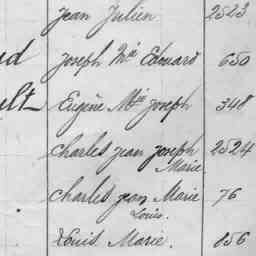 Jean Julien 2523
Joseph Mie Edouard 650
Eugène Mie Joseph 348
Charles Jean Joseph 2524
Marie
Charles Jean Marie 76
Louis.
Louis Marie. 856